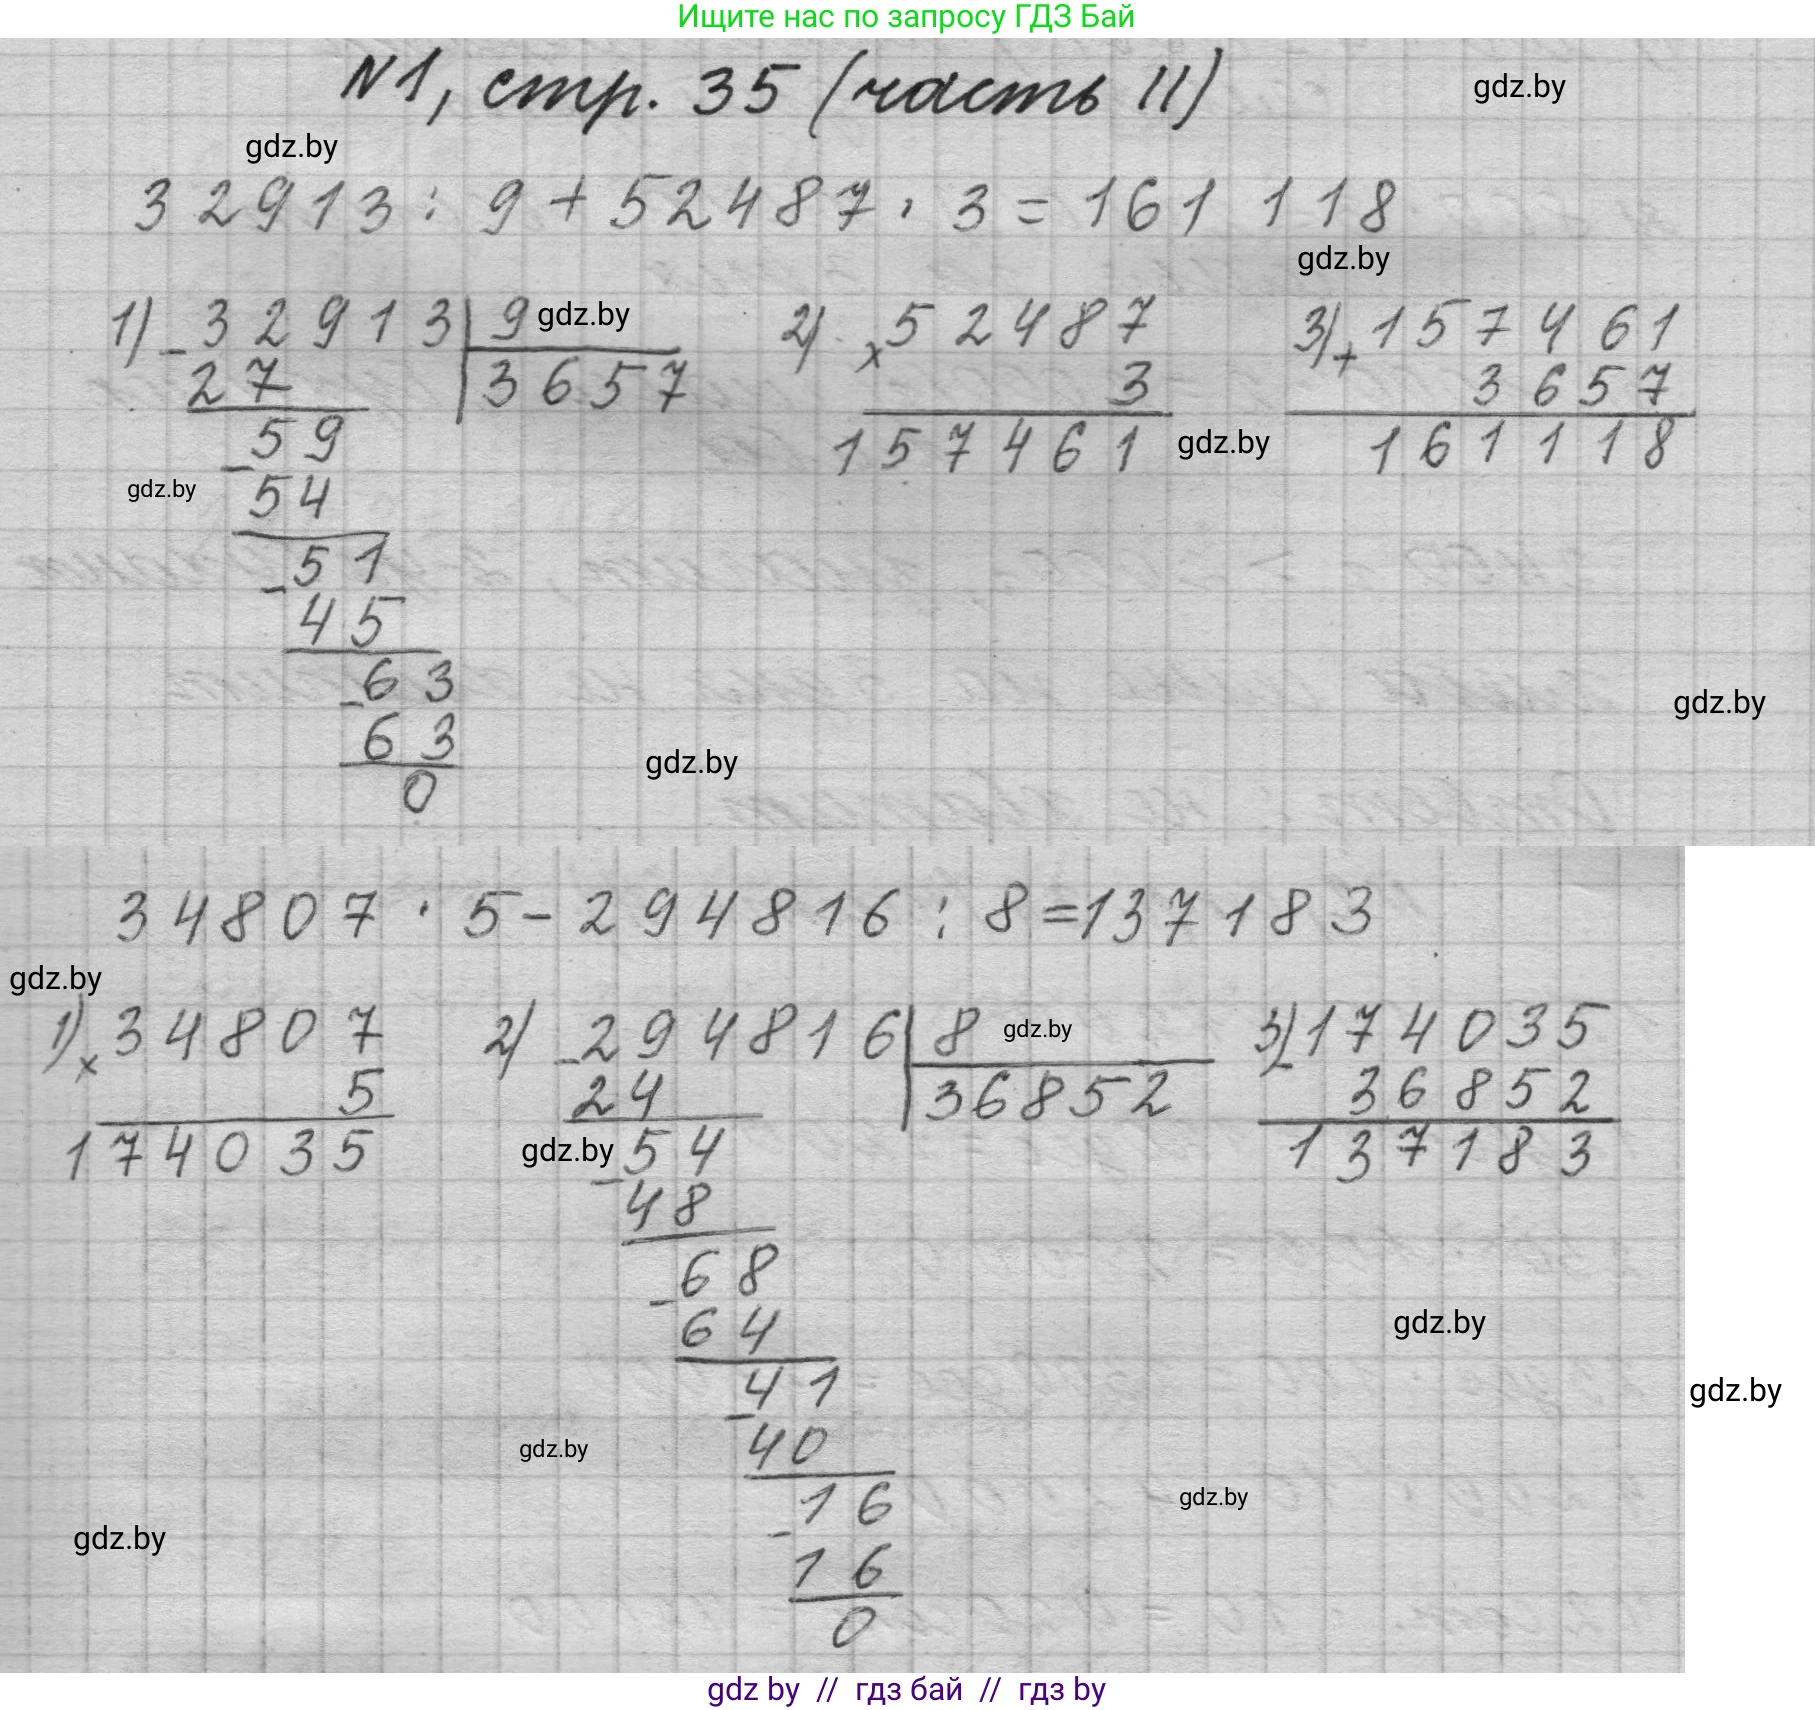 Ищите нас по запросу ГДЗ Бай
N1, стр. 35 (часть II)
gdz.by
gdz.by
32913 : 9 + 52487 · 3 = 161 118
gdz.by
1) - 32913 | 9
3657
gdz.by
27
59
- 54
gdz.by
51
- 45
63
- 63
0
2) x 52487
3
157461
gdz.by
3) + 157461
3657
161118
gdz.by
gdz.by
34807 · 5 - 294816 : 8 = 137183
gdz.by
1) x 34807
5
174035
2) - 294816 | 8
36852
gdz.by
24
gdz.by
54
- 48
68
- 64
41
- 40
gdz.by
16
- 16
0
3) - 174035
36852
137183
gdz.by
gdz.by
gdz.by
gdz.by
gdz by // гдз бай // гдз by